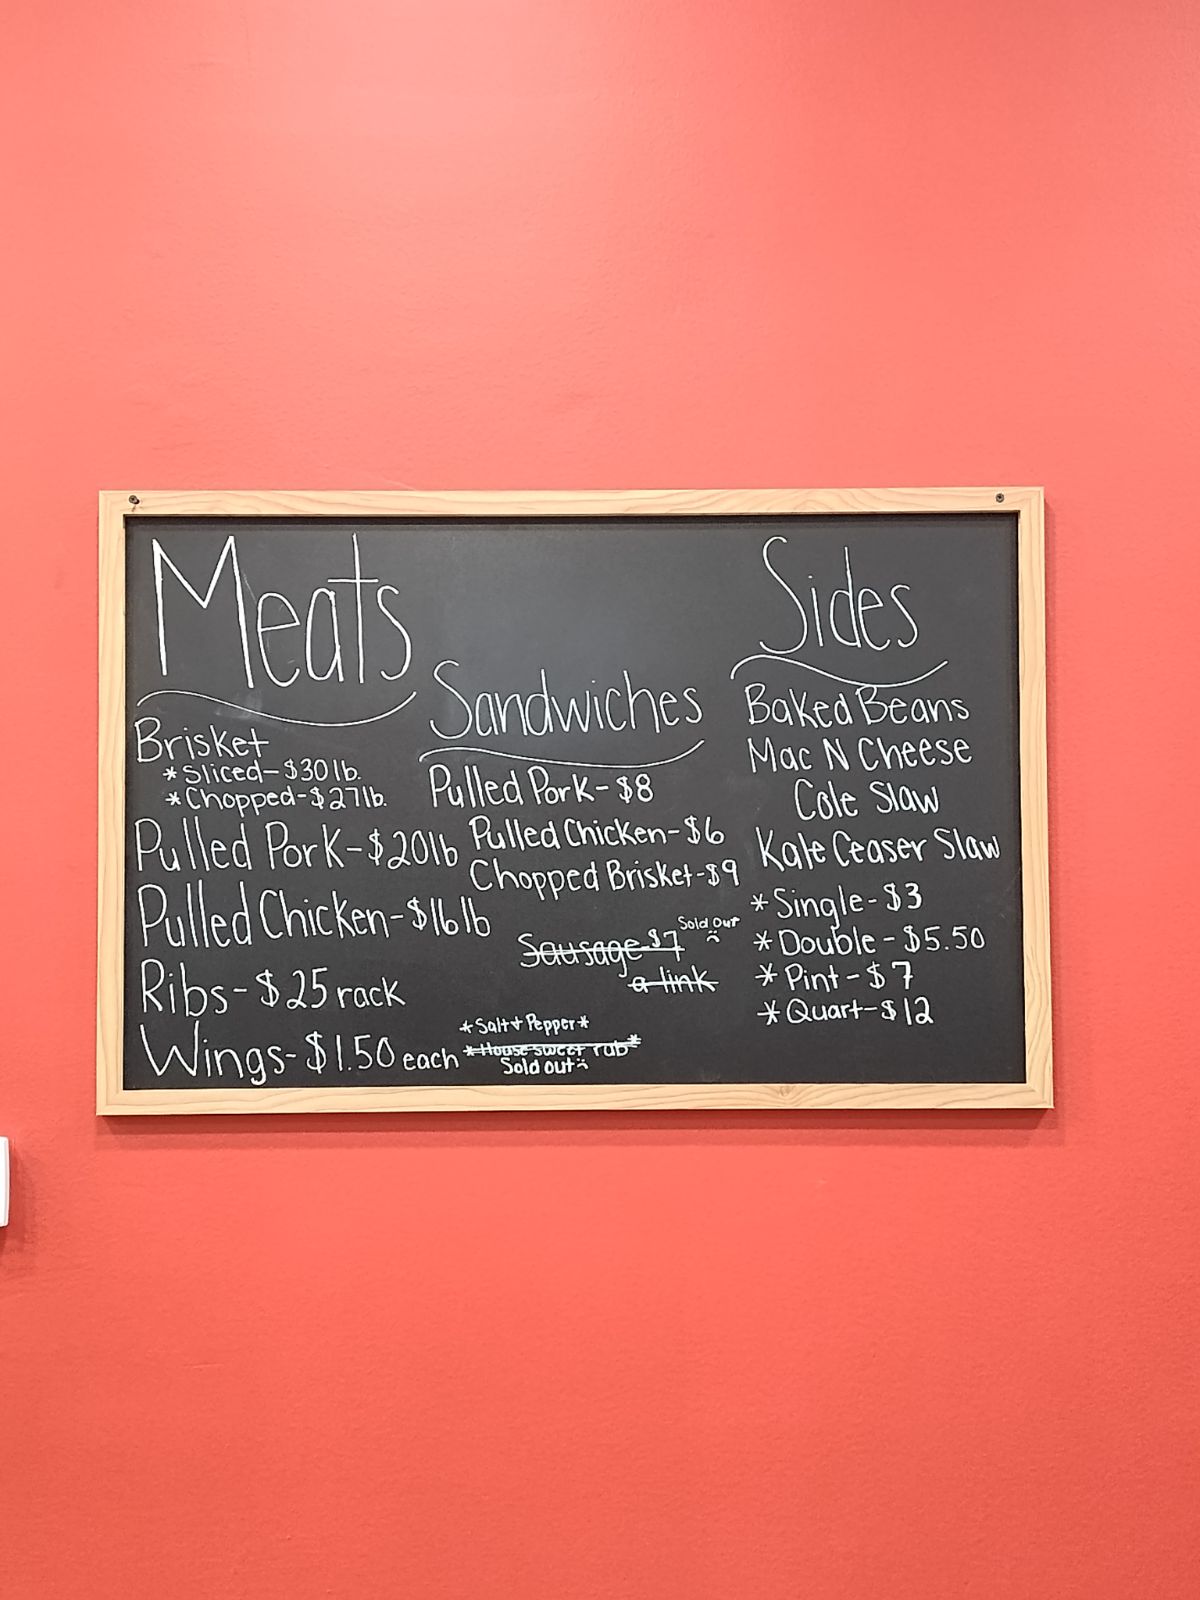 Meats
Brisket
*Sliced-$30lb.
*Chopped-$27lb.
Pulled Pork-$20lb
Pulled Chicken-$16lb
Ribs-$25 rack
Wings-$1.50 each
*Salt+Pepper*
*House sweet rub*
Sold out
Sandwiches
Pulled Pork-$8
Pulled Chicken-$6
Chopped Brisket-$9
Sausage-$7
Sold Out
a link
Sides
Baked Beans
Mac N Cheese
Cole Slaw
Kale Ceaser Slaw
*Single-$3
*Double-$5.50
*Pint-$7
*Quart-$12